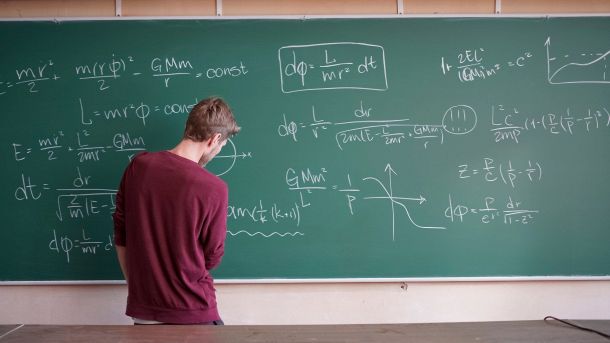 = mṙ²/2 + m(rφ̇)²/2 − GMm/r = const
L = mr²φ̇ = const
E = mṙ²/2 + L²/2mr − GMm/
dt = dr/√(2/m(E −
dφ = L/mr² d
(1/k (k+1))
dφ = L/mr² dt
dφ = L/r² dr/√(2m(E − L²/2mr² + GMm/r))
(!!!)
GMm²/L² = 1/p
x
1 + 2EL²/(GM)²m³ = e²
L²e²/2mp (1 − (p/e (1/p − 1/r)
z = p/e (1/p − 1/r)
dφ = p/er² dr/√(1−z²)